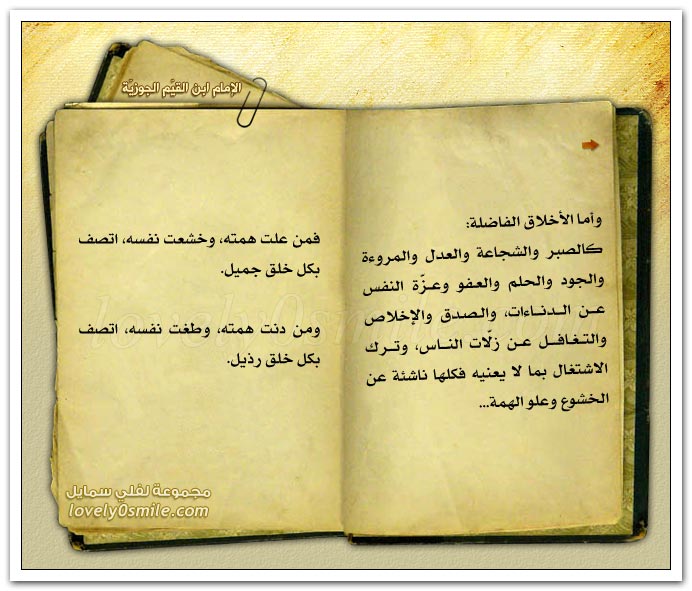 الإمام ابن القيَّم الجوزيَّة
وأما الأخلاق الفاضلة:
كالصبر والشجاعة والعدل والمروءة
والجود والحلم والعفو وعزّة النفس
عن الدناءات، والصدق والإخلاص
والتغافل عن زلّات الناس، وترك
الاشتغال بما لا يعنيه فكلها ناشئة عن
الخشوع وعلو الهمة...
فمن علت همته، وخشعت نفسه، اتصف
بكل خلق جميل.
ومن دنت همته، وطغت نفسه، اتصف
بكل خلق رذيل.
مجموعة لفلي سمايل
lovely0smile.com